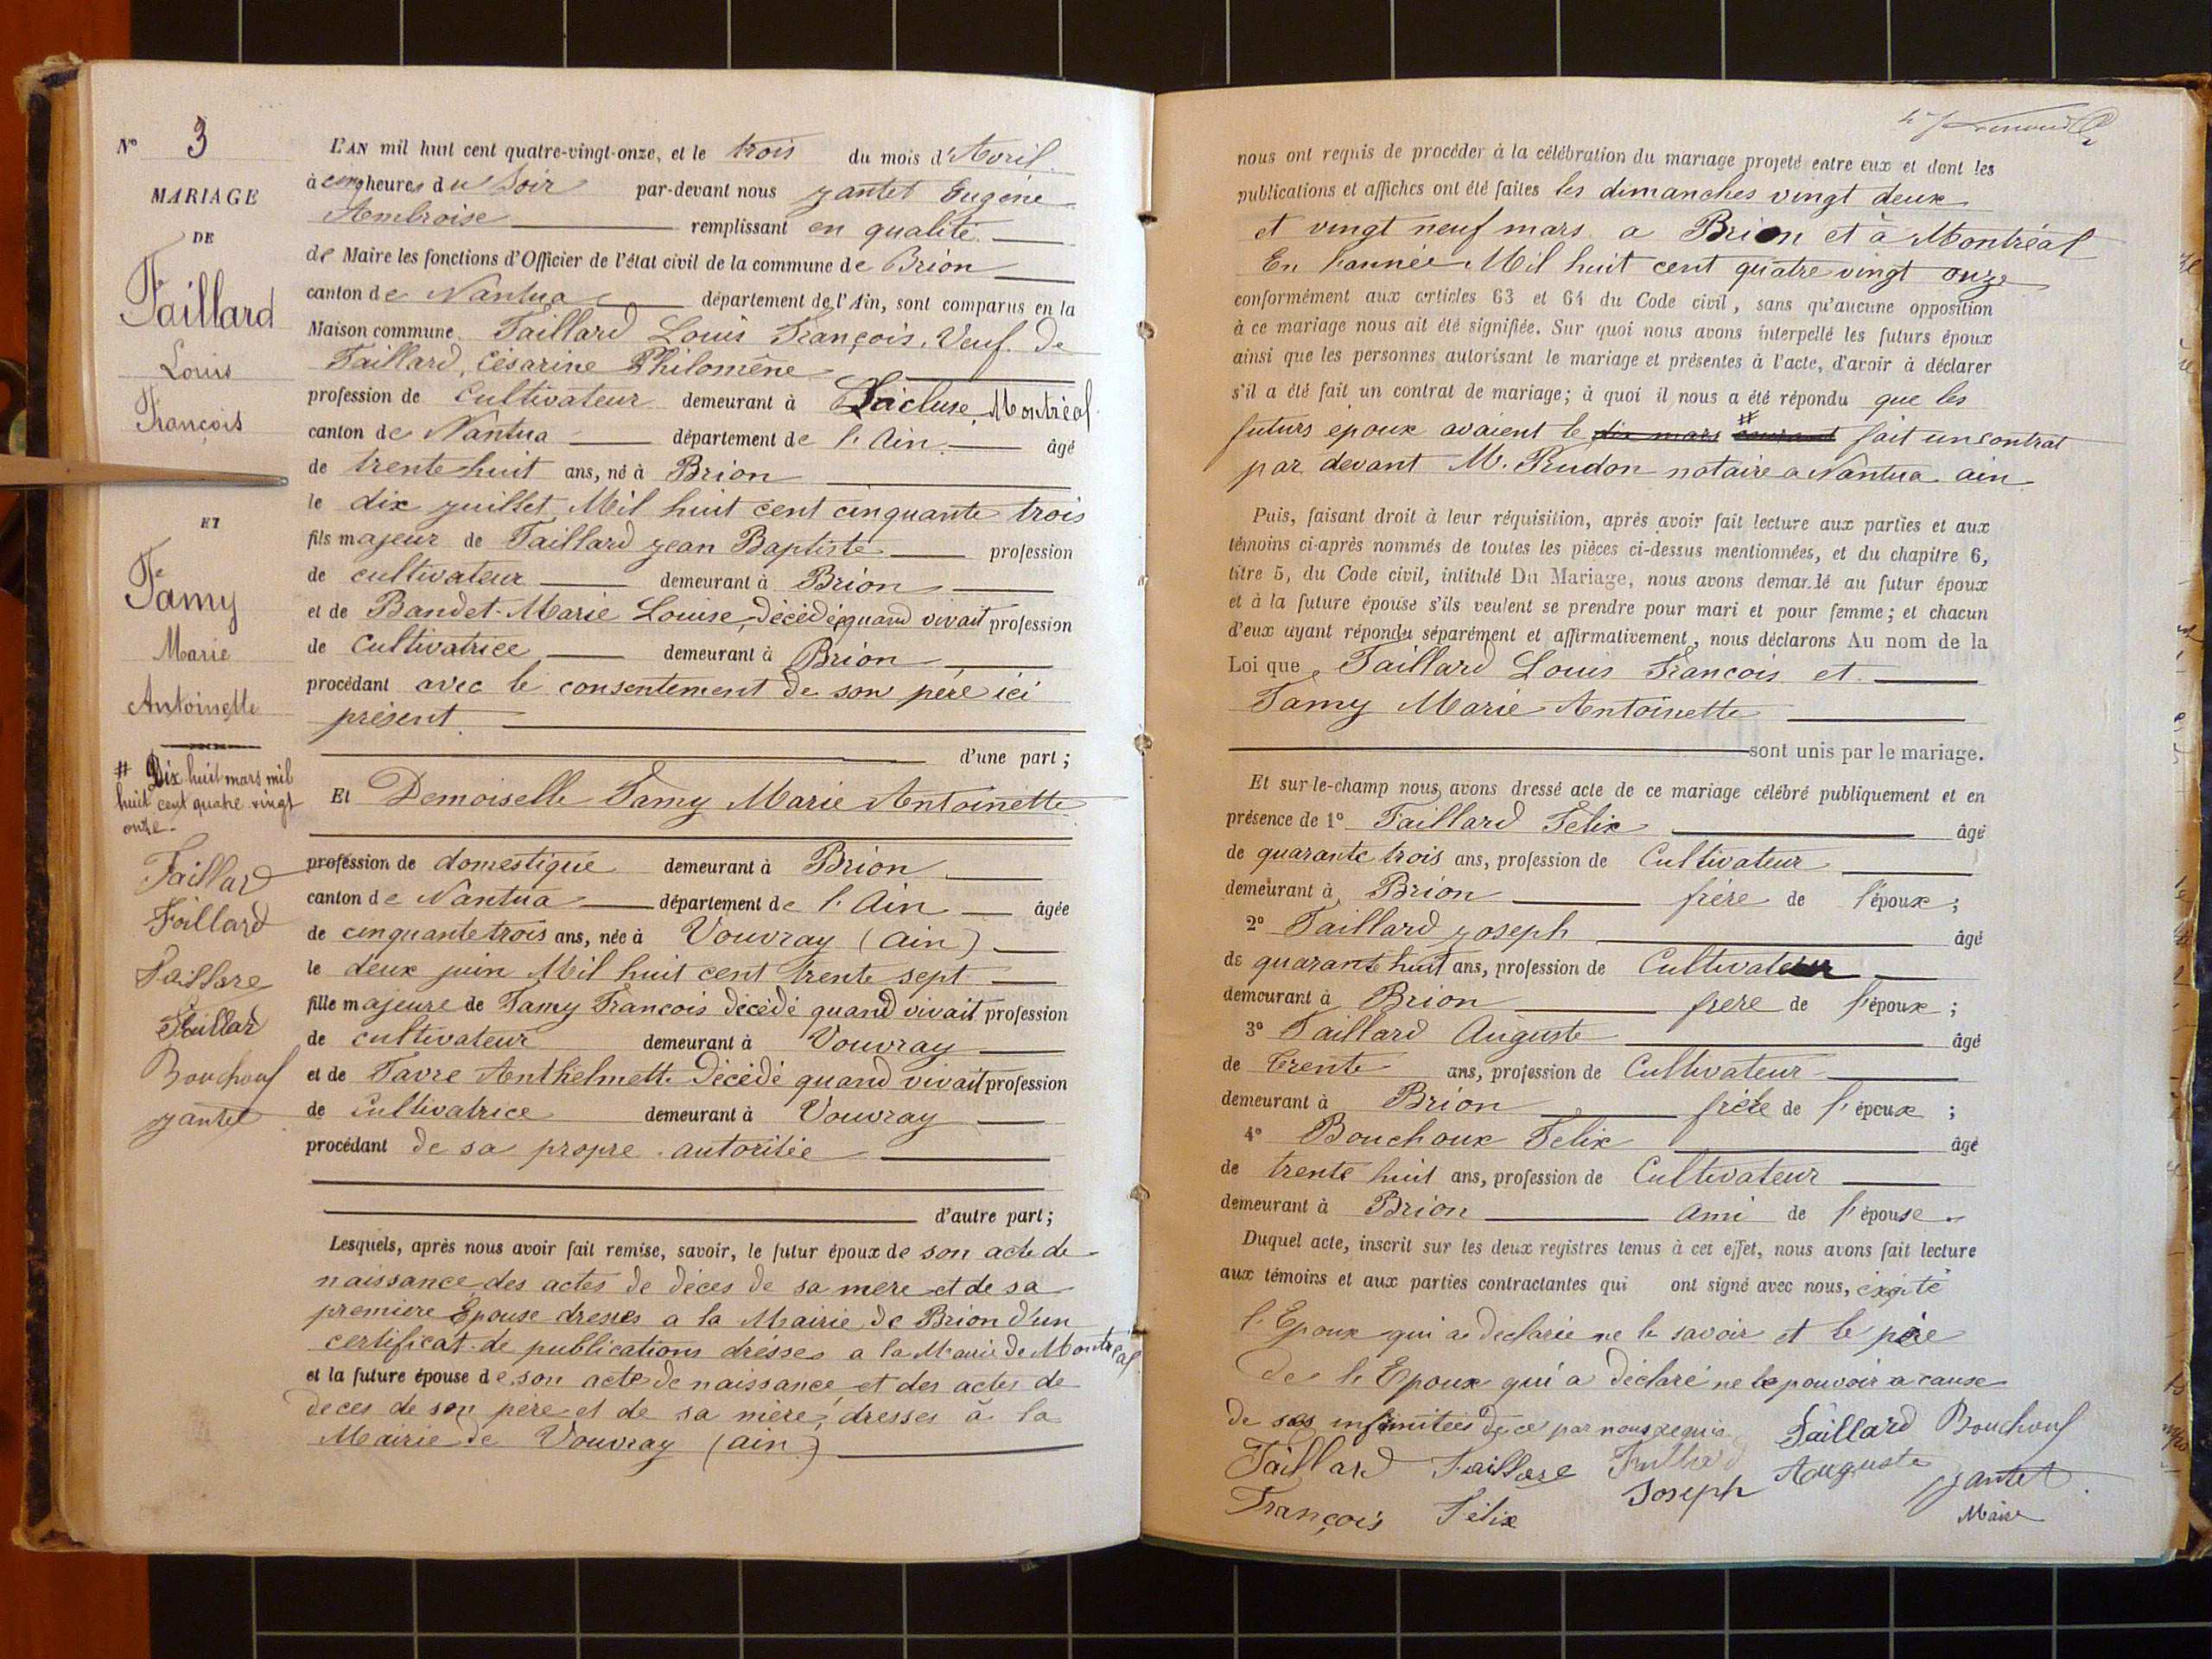 N° 3
MARIAGE
DE
Taillard
Louis
François
ET
Famy
Marie
Antoinette
# Dix huit mars mil
huit cent quatre vingt
onze.
Taillard
Taillard
Taillard
Taillard
Bouchoux
Jantet
L'AN mil huit cent quatre-vingt-onze, et le trois du mois d'Avril
à cinq heures du Soir par-devant nous Jantet Eugène
Ambroise remplissant en qualité
de Maire les fonctions d'Officier de l'état civil de la commune de Brion
canton de Nantua département de l'Ain, sont comparus en la
Maison commune Taillard Louis François, Veuf de
Taillard, Césarine Philomène
profession de Cultivateur demeurant à Lacluse, Montréal
canton de Nantua département de l'Ain âgé
de trente huit ans, né à Brion
le dix juillet Mil huit cent cinquante trois
fils majeur de Taillard Jean Baptiste profession
de cultivateur demeurant à Brion
et de Bandet Marie Louise, décédée quand vivait profession
de Cultivatrice demeurant à Brion
procédant avec le consentement de son père ici
présent
d'une part;
Et Demoiselle Famy Marie Antoinette
profession de domestique demeurant à Brion
canton de Nantua département de l'Ain âgée
de cinquante trois ans, née à Vouvray (Ain)
le deux juin Mil huit cent trente sept
fille majeure de Famy François décédé quand vivait profession
de cultivateur demeurant à Vouvray
et de Favre Anthelmette décédé quand vivait profession
de Cultivatrice demeurant à Vouvray
procédant de sa propre autoritée
d'autre part;
Lesquels, après nous avoir fait remise, savoir, le futur époux de son acte de
naissance, des actes de déces de sa mère et de sa
premiere Epouse dresses a la Mairie de Brion d'un
certificat de publications drésses a la Mairie de Montréal
et la future épouse de son acte de naissance et des actes de
deces de son père et de sa mère, dresses à la
Mairie de Vouvray (ain)
nous ont requis de procéder à la célébration du mariage projeté entre eux et dont les
publications et affiches ont été faites les dimanches vingt deux
et vingt neuf mars a Brion et à Montréal
En l'année Mil huit cent quatre vingt onze
conformément aux articles 63 et 64 du Code civil, sans qu'aucune opposition
à ce mariage nous ait été signifiée. Sur quoi nous avons interpellé les futurs époux
ainsi que les personnes autorisant le mariage et présentes à l'acte, d'avoir à déclarer
s'il a été fait un contrat de mariage; à quoi il nous a été répondu que les
futurs epoux avaient le dix mars courant # fait un contrat
par devant M. Prudon notaire a Nantua ain
Puis, faisant droit à leur réquisition, après avoir fait lecture aux parties et aux
témoins ci-après nommés de toutes les pièces ci-dessus mentionnées, et du chapitre 6,
titre 5, du Code civil, intitulé Du Mariage, nous avons demandé au futur époux
et à la future épouse s'ils veulent se prendre pour mari et pour femme; et chacun
d'eux ayant répondu séparément et affirmativement, nous déclarons Au nom de la
Loi que Taillard Louis Francois et
Famy Marie Antoinette
sont unis par le mariage.
Et sur-le-champ nous avons dressé acte de ce mariage célébré publiquement et en
présence de 1° Taillard Felix âgé
de quarante trois ans, profession de Cultivateur
demeurant à Brion frère de l'époux;
2° Taillard Joseph âgé
de quarante huit ans, profession de Cultivateur
demeurant à Brion frère de l'époux;
3° Taillard Auguste âgé
de trente ans, profession de Cultivateur
demeurant à Brion frère de l'époux;
4° Bouchoux Felix âgé
de trente huit ans, profession de Cultivateur
demeurant à Brion ami de l'épouse.
Duquel acte, inscrit sur les deux registres tenus à cet effet, nous avons fait lecture
aux témoins et aux parties contractantes qui ont signé avec nous, éxepté
l'Epoux qui a declarie ne le savoir et le père
de l'Epoux qui a déclaré ne le pouvoir a cause
de ses infirmitées de ce par nous requis Taillard Bouchoux
Taillard Taillard Taillard Auguste Jantet
François Félix Joseph Maire